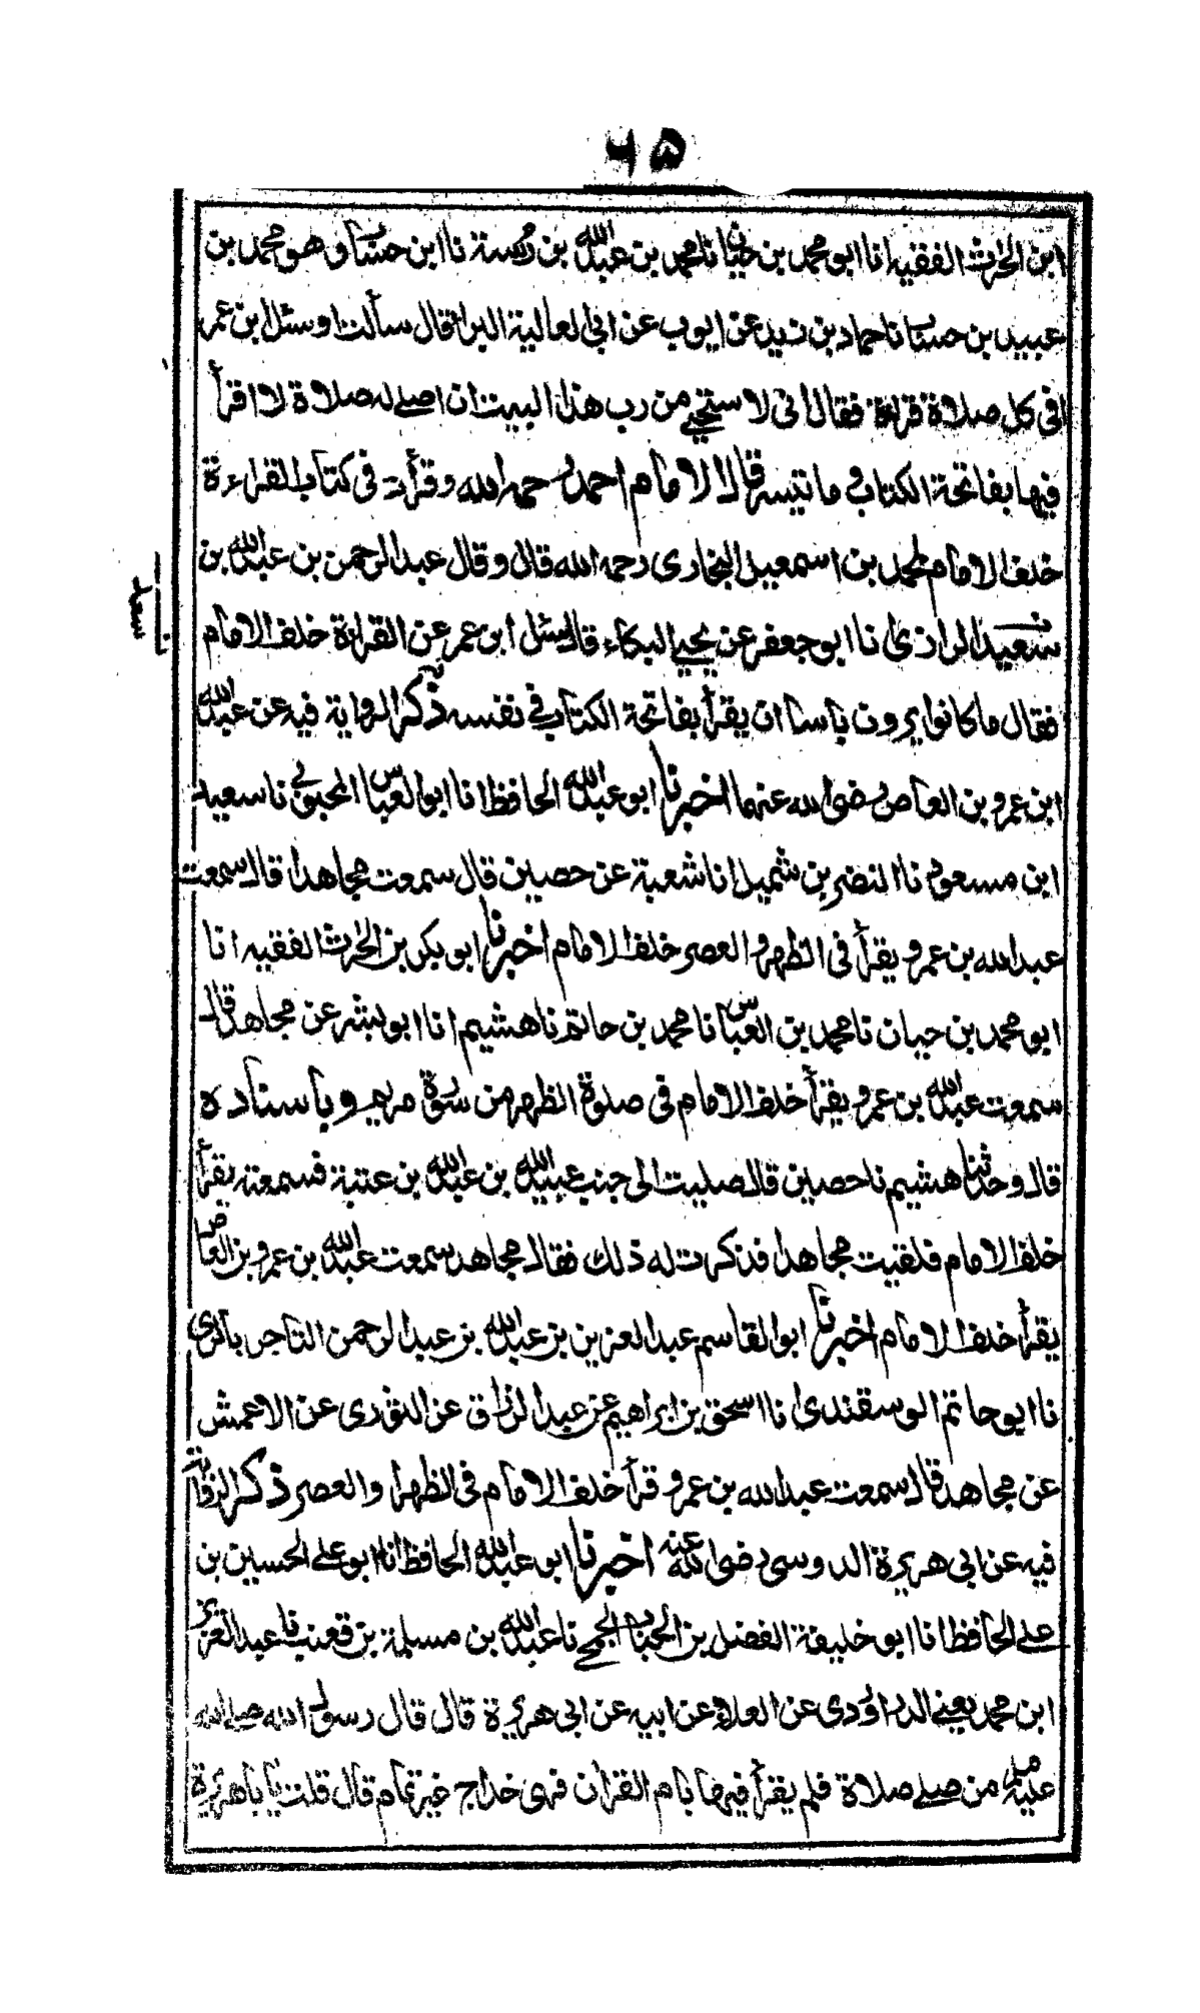 ٦٥
ابن الحرث الفقيه انا ابو محمد بن حيان نا محمد بن عبد الله بن رسته نا ابن حساب وهو محمد بن
عبيد بن حساب نا حماد بن زيد عن ايوب عن ابى العالية البراء قال سألت او سئل ابن عمر
افى كل صلاة قراءة فقال انى لاستحيي من رب هذا البيت ان اصلى له صلاة لا اقرأ
فيها بفاتحة الكتاب وما تيسر قال الامام احمد رحمه الله وقرأت فى كتاب القراءة
خلف الامام لمحمد بن اسمعيل البخارى رحمه الله قال وقال عبد الرحمن بن عبد الله بن
سعيد الرازى نا ابو جعفر عن يحيى البكاء قال سئل ابن عمر عن القراءة خلف الامام
سعد
فقال ما كانوا يرون باسا ان يقرأ بفاتحة الكتاب فى نفسه ذكر الرواية فيه عن عبد الله
ابن عمرو بن العاص رضى الله عنهما اخبرنا ابو عبد الله الحافظ انا ابو العباس المحبوبى نا سعيد
ابن مسعود نا النضر بن شميل انا شعبة عن حصين قال سمعت مجاهدا قال سمعت
عبد الله بن عمرو يقرأ فى الظهر والعصر خلف الامام اخبرنا ابو بكر بن الحرث الفقيه انا
ابو محمد بن حيان نا محمد بن العباس نا محمد بن حاتم نا هشيم انا ابو بشر عن مجاهد قال
سمعت عبد الله بن عمرو يقرأ خلف الامام فى صلوة الظهر من سورة مريم وباسناده
قال وحدثنا هشيم نا حصين قال صليت الى جنب عبيد الله بن عبد الله بن عتبة فسمعته يقرأ
خلف الامام فلقيت مجاهدا فذكرت له ذلك فقال مجاهد سمعت عبد الله بن عمرو بن العاص
يقرأ خلف الامام اخبرنا ابو القاسم عبد العزيز بن عبد الله بن عبد الرحمن التاجر بالرى
نا ابو حاتم الوسقندى نا اسحق بن ابراهيم عن عبد الرزاق عن الثورى عن الاعمش
عن مجاهد قال سمعت عبد الله بن عمرو قرأ خلف الامام فى الظهر والعصر ذكر الرواية
فيه عن ابى هريرة الدوسى رضى الله عنه اخبرنا ابو عبد الله الحافظ انا ابو على الحسين بن
على الحافظ انا ابو خليفة الفضل بن الحباب الجمحى نا عبد الله بن مسلمة بن قعنب نا عبد العزيز
ابن محمد يعنى الدراوردى عن العلاء عن ابيه عن ابى هريرة قال قال رسول الله صلى الله
عليه من صلى صلاة فلم يقرأ فيها بام القران فهى خداج غير تمام قال قلت يا ابا هريرة